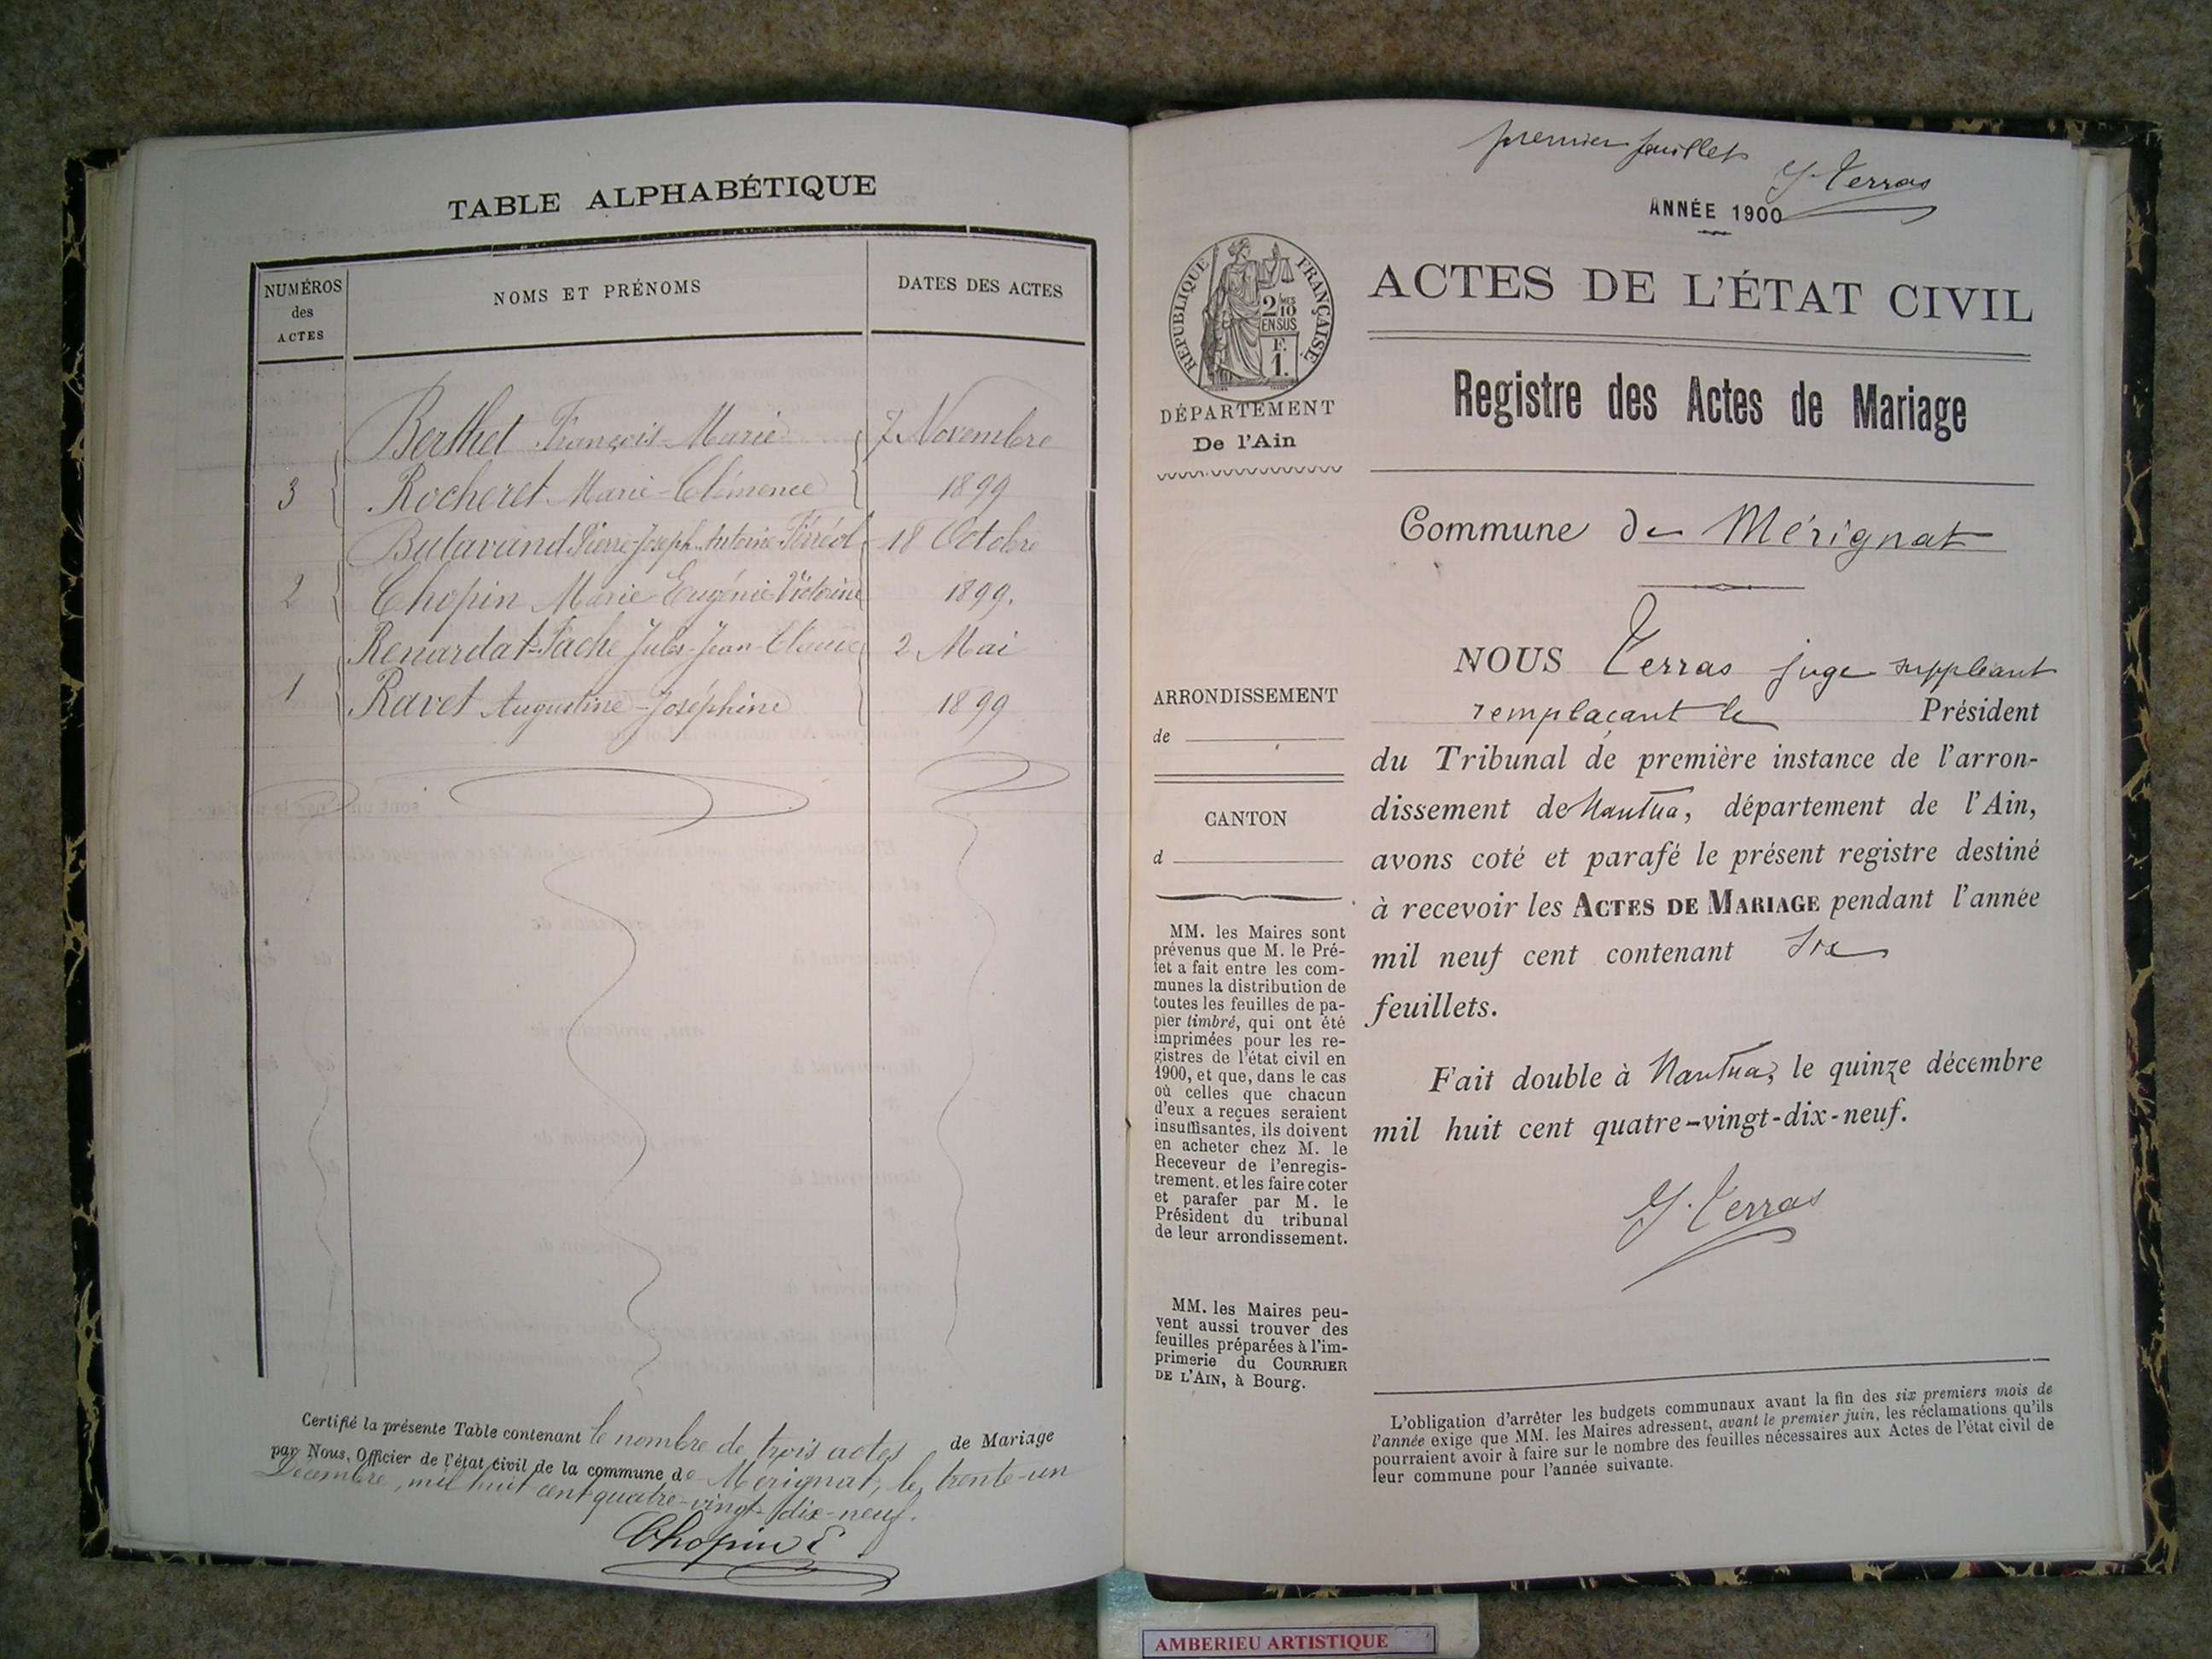 TABLE ALPHABÉTIQUE
NUMÉROS
des
ACTES
NOMS ET PRÉNOMS
DATES DES ACTES
Berthet François-Marie 7 Novembre
3 Rocheret Marie-Clémence 1899
Butavand Pierre-Joseph-Antoine-Férréol 18 Octobre
2 Chopin Marie Eugénie Victorine 1899.
Renardat-Fache Jules-Jean-Claude 2 Mai
1 Ravet Augustine-Joséphine 1899
Certifié la présente Table contenant le nombre de trois actes de Mariage
par Nous, Officier de l'état civil de la commune de Mérignat, le trente-un
Décembre, mil huit cent quatre-vingt-dix-neuf.
Chopin E
premier feuillet
G. Terras
ANNÉE 1900
RÉPUBLIQUE FRANÇAISE
2/10
EN SUS
F.
1.
DÉPARTEMENT
De l'Ain
ARRONDISSEMENT
de
CANTON
d
MM. les Maires sont
prévenus que M. le Pré-
fet a fait entre les com-
munes la distribution de
toutes les feuilles de pa-
pier timbré, qui ont été
imprimées pour les re-
gistres de l'état civil en
1900, et que, dans le cas
où celles que chacun
d'eux a reçues seraient
insuffisantes, ils doivent
en acheter chez M. le
Receveur de l'enregis-
trement, et les faire coter
et parafer par M. le
Président du tribunal
de leur arrondissement.
MM. les Maires peu-
vent aussi trouver des
feuilles préparées à l'im-
primerie du COURRIER
DE L'AIN, à Bourg.
ACTES DE L'ÉTAT CIVIL
Registre des Actes de Mariage
Commune de Mérignat
NOUS Terras juge suppléant
remplaçant le Président
du Tribunal de première instance de l'arron-
dissement de Nantua, département de l'Ain,
avons coté et parafé le présent registre destiné
à recevoir les ACTES DE MARIAGE pendant l'année
mil neuf cent contenant six
feuillets.
Fait double à Nantua, le quinze décembre
mil huit cent quatre-vingt-dix-neuf.
G. Terras
L'obligation d'arrêter les budgets communaux avant la fin des six premiers mois de
l'année exige que MM. les Maires adressent, avant le premier juin, les réclamations qu'ils
pourraient avoir à faire sur le nombre des feuilles nécessaires aux Actes de l'état civil de
leur commune pour l'année suivante.
AMBERIEU ARTISTIQUE